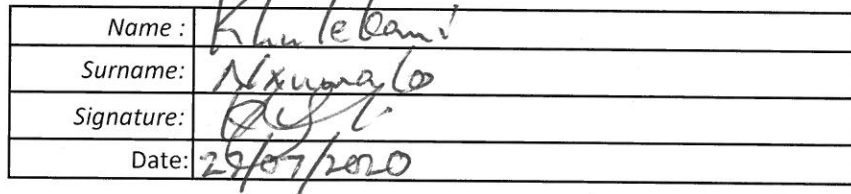 Name : Khulekani
Surname: Nxumalo
Signature:
Date: 29/07/2020